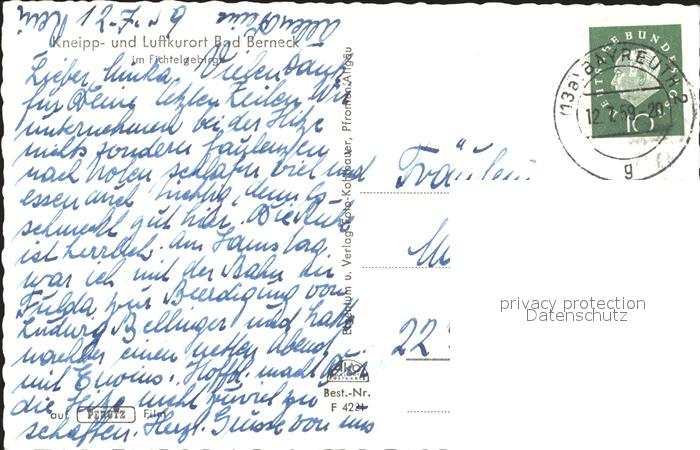 12.7.59
Kneipp- und Luftkurort Bad Berneck
im Fichtelgebirge
Lieber Vielen Dank
für Deine letzten Zeilen. Wir
unternehmen bei der Hitze
nichts sondern faulenzen
nach Noten schlafen viel und
essen auch tüchtig, denn es
schmeckt gut hier. Die Ruhe
ist herrlich. Am Samstag
war ich mit der Bahn in
Fulda zur Beerdigung von
Ludwig Bellinger und hatte
nachher einen netten Abend
mit Erwins. Hofftl. macht
die Hitze nicht zuviel zu
schaffen. Herzl. Grüsse von uns
auf PERUTZ Film
Eigentum u. Verlag Foto-Kolbbauer, Pfronten/Allgäu
Best.-Nr.
F 422
Fräulein
22
DEUTSCHE BUNDESPOST
10
(13a) BAYREUTH 2
12.7.59-20
g
privacy protection
Datenschutz